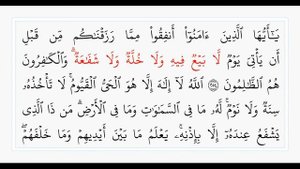 يَـٰٓأَيُّهَا ٱلَّذِينَ ءَامَنُوٓا۟ أَنفِقُوا۟ مِمَّا رَزَقْنَـٰكُم مِّن قَبْلِ
أَن يَأْتِىَ يَوْمٌ لَّا بَيْعٌ فِيهِ وَلَا خُلَّةٌ وَلَا شَفَـٰعَةٌ ۗ وَٱلْكَـٰفِرُونَ
هُمُ ٱلظَّـٰلِمُونَ ٢٥٤ ٱللَّهُ لَآ إِلَـٰهَ إِلَّا هُوَ ٱلْحَىُّ ٱلْقَيُّومُ ۚ لَا تَأْخُذُهُۥ
سِنَةٌ وَلَا نَوْمٌ ۚ لَّهُۥ مَا فِى ٱلسَّمَـٰوَٰتِ وَمَا فِى ٱلْأَرْضِ ۗ مَن ذَا ٱلَّذِى
يَشْفَعُ عِندَهُۥٓ إِلَّا بِإِذْنِهِۦ ۚ يَعْلَمُ مَا بَيْنَ أَيْدِيهِمْ وَمَا خَلْفَهُمْ ۖ